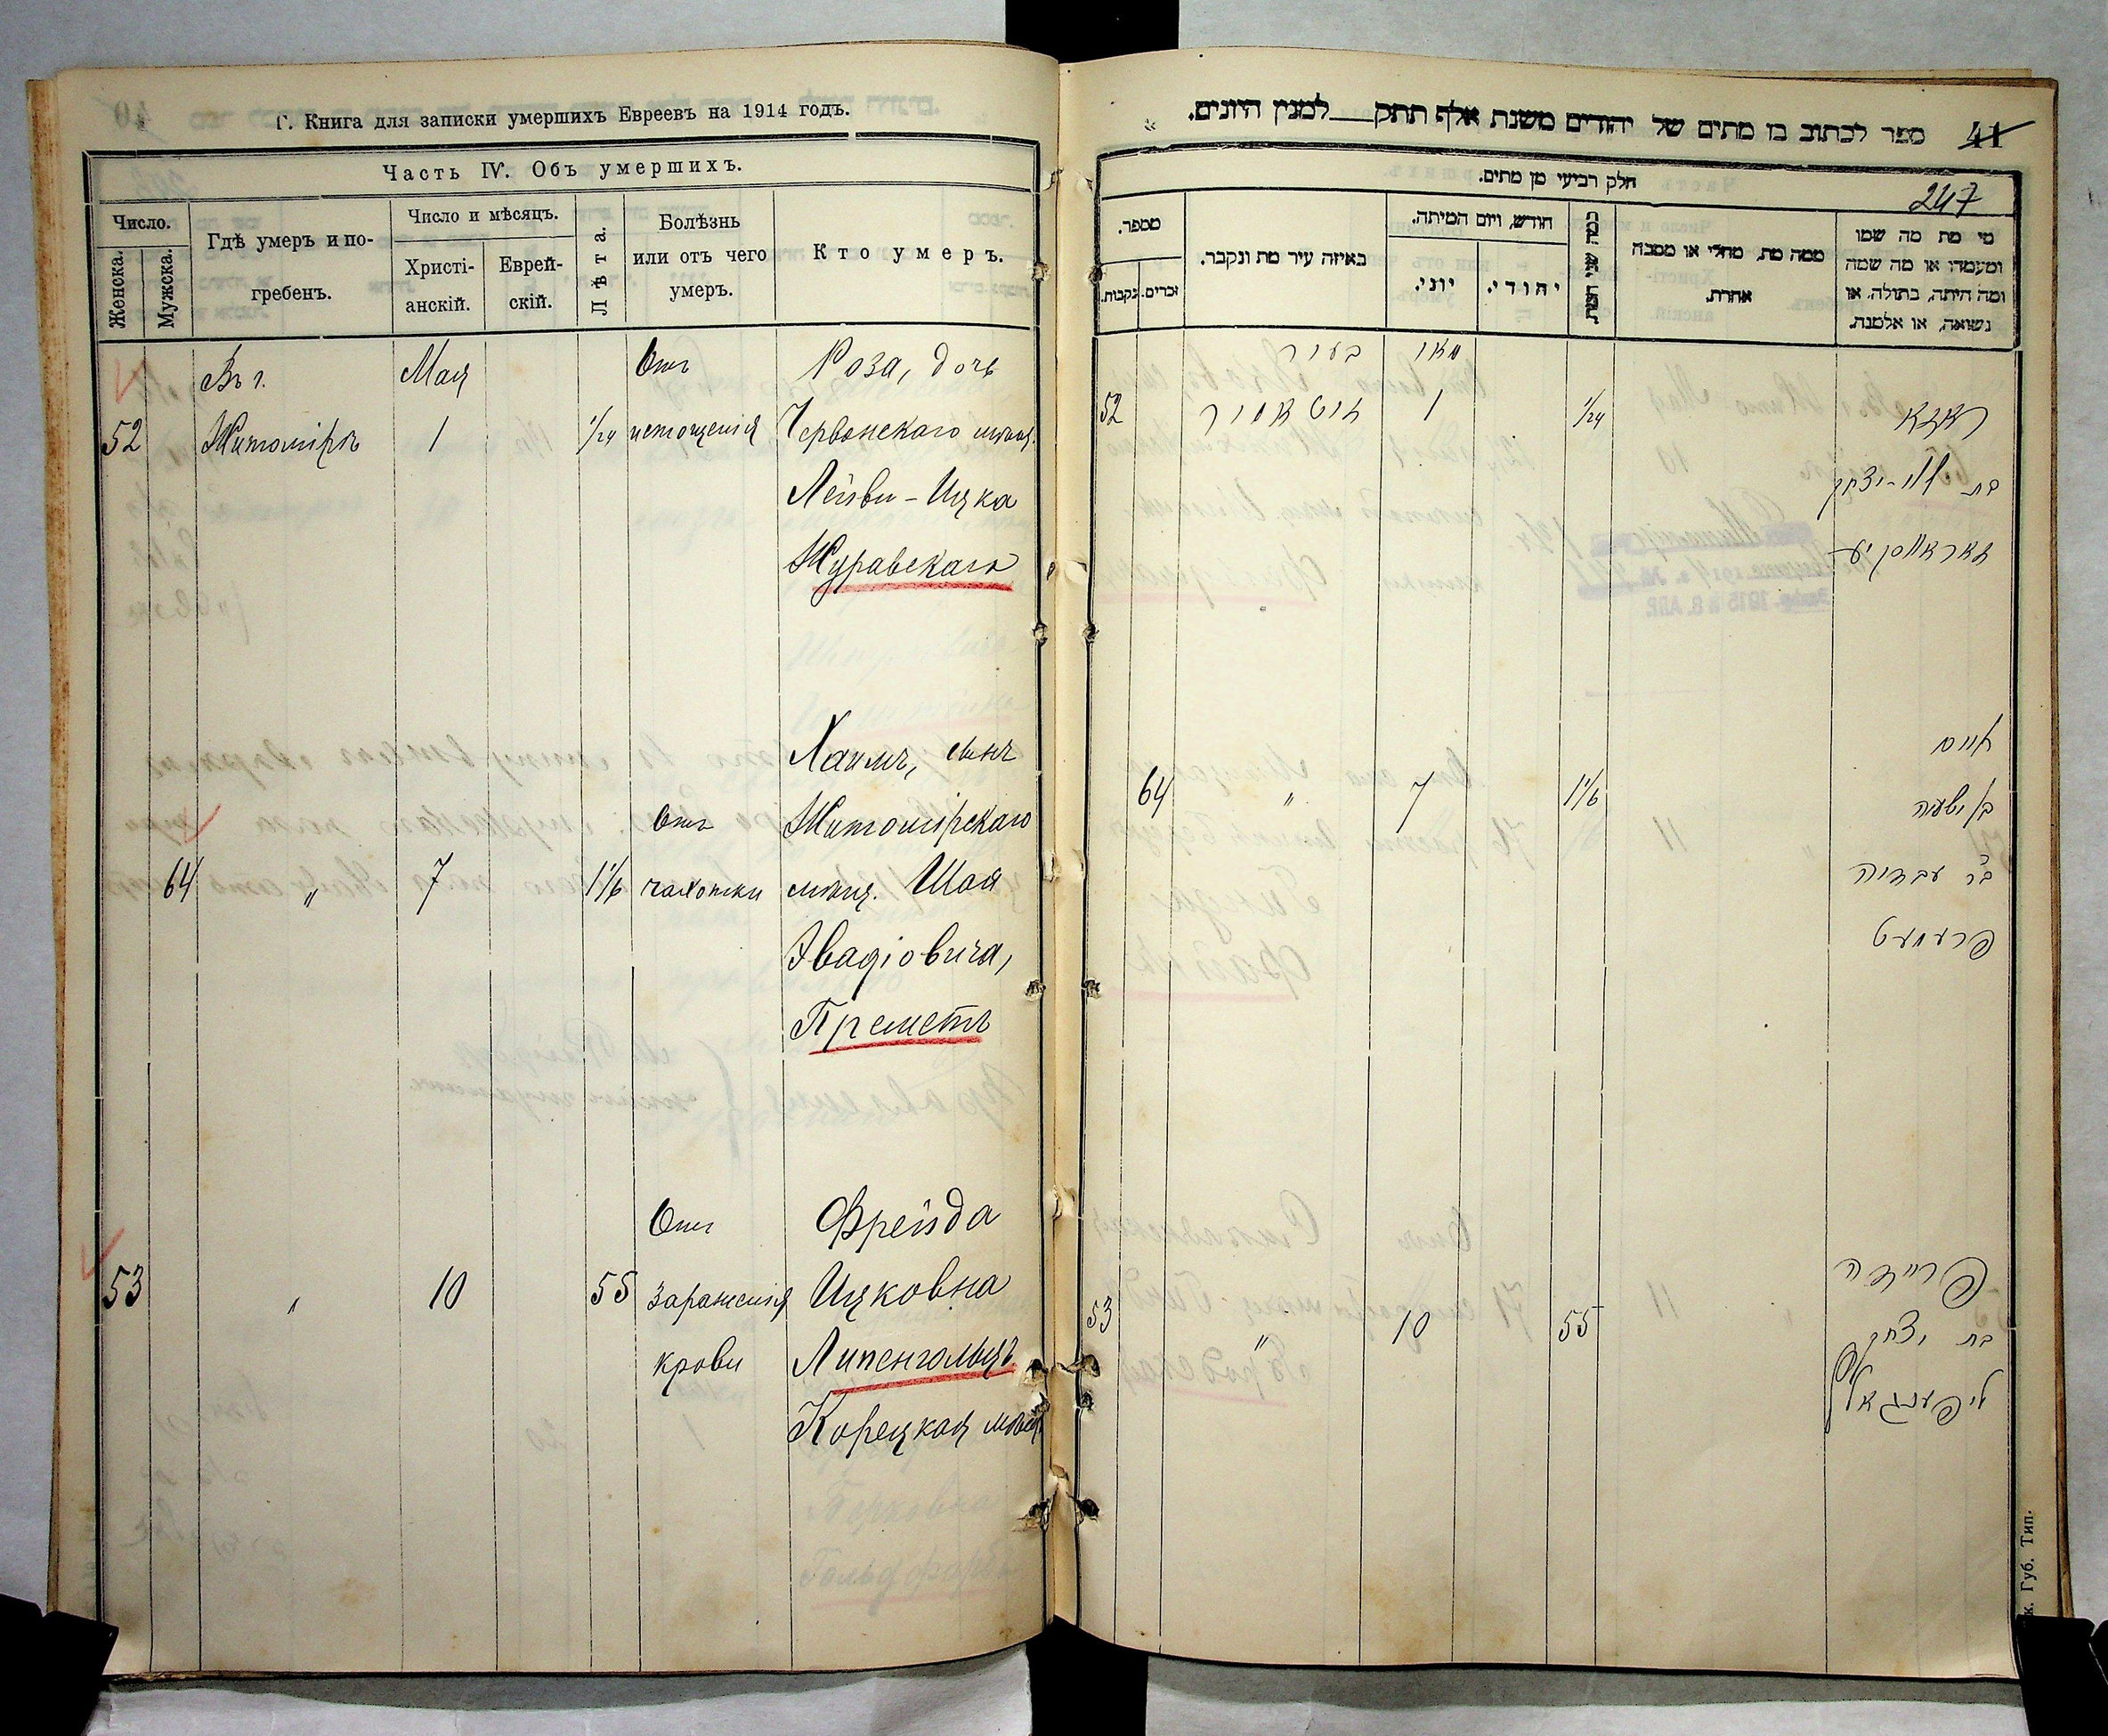 Г. Книга для записки умершихъ Евреевъ на 1914 годъ.
Часть IV. Объ умершихъ.
Число.
Женска.
Мужска.
Гдѣ умеръ и по-
гребенъ.
Число и мѣсяцъ.
Христі-
анскій.
Еврей-
скій.
Лѣта.
Болѣзнь
или отъ чего
умеръ.
Кто умеръ.
Въ г. Мая Отъ Роза, дочь
52 Житомірѣ 1 1/24 истощенія Червонскаго мѣщ.
Лейви-Ицка
Журавскаго
Хаимъ, сынъ
Отъ Житомірскаго
64 " 7 1 1/6 чахотки мѣщ. Шоя
Эвадіовича,
Преметъ
Отъ Фрейда
53 " 10 55 зараженія Ицковна
крови Липенгольцъ
Корецкая мѣщ.
ספר לכתוב בו מתים של יהודים משנת אלף תתק למנין היונים.
41
247
חלק רביעי מן מתים.
מספר.
נקבות.
זכרים.
באיזה עיר מת ונקבר.
חודש, ויום המיתה.
יוני.
יהודי.
ממה מת, מחלי או מסבה
אחרת.
מי מת מה שמו
ומעמדו או מה שמה
ומה היתה, בתולה, או
נשואה, או אלמנה.
בעיר מאי
52 זיטאמיר 1 1/24 ראזא
בת לוי-יצחק
64 " 7 1 1/6 חיים
בן ישעיה
בר עבדיה
פרעמעט
53 " 10 55 פריידה
בת יצחק
к. Губ. Тип.